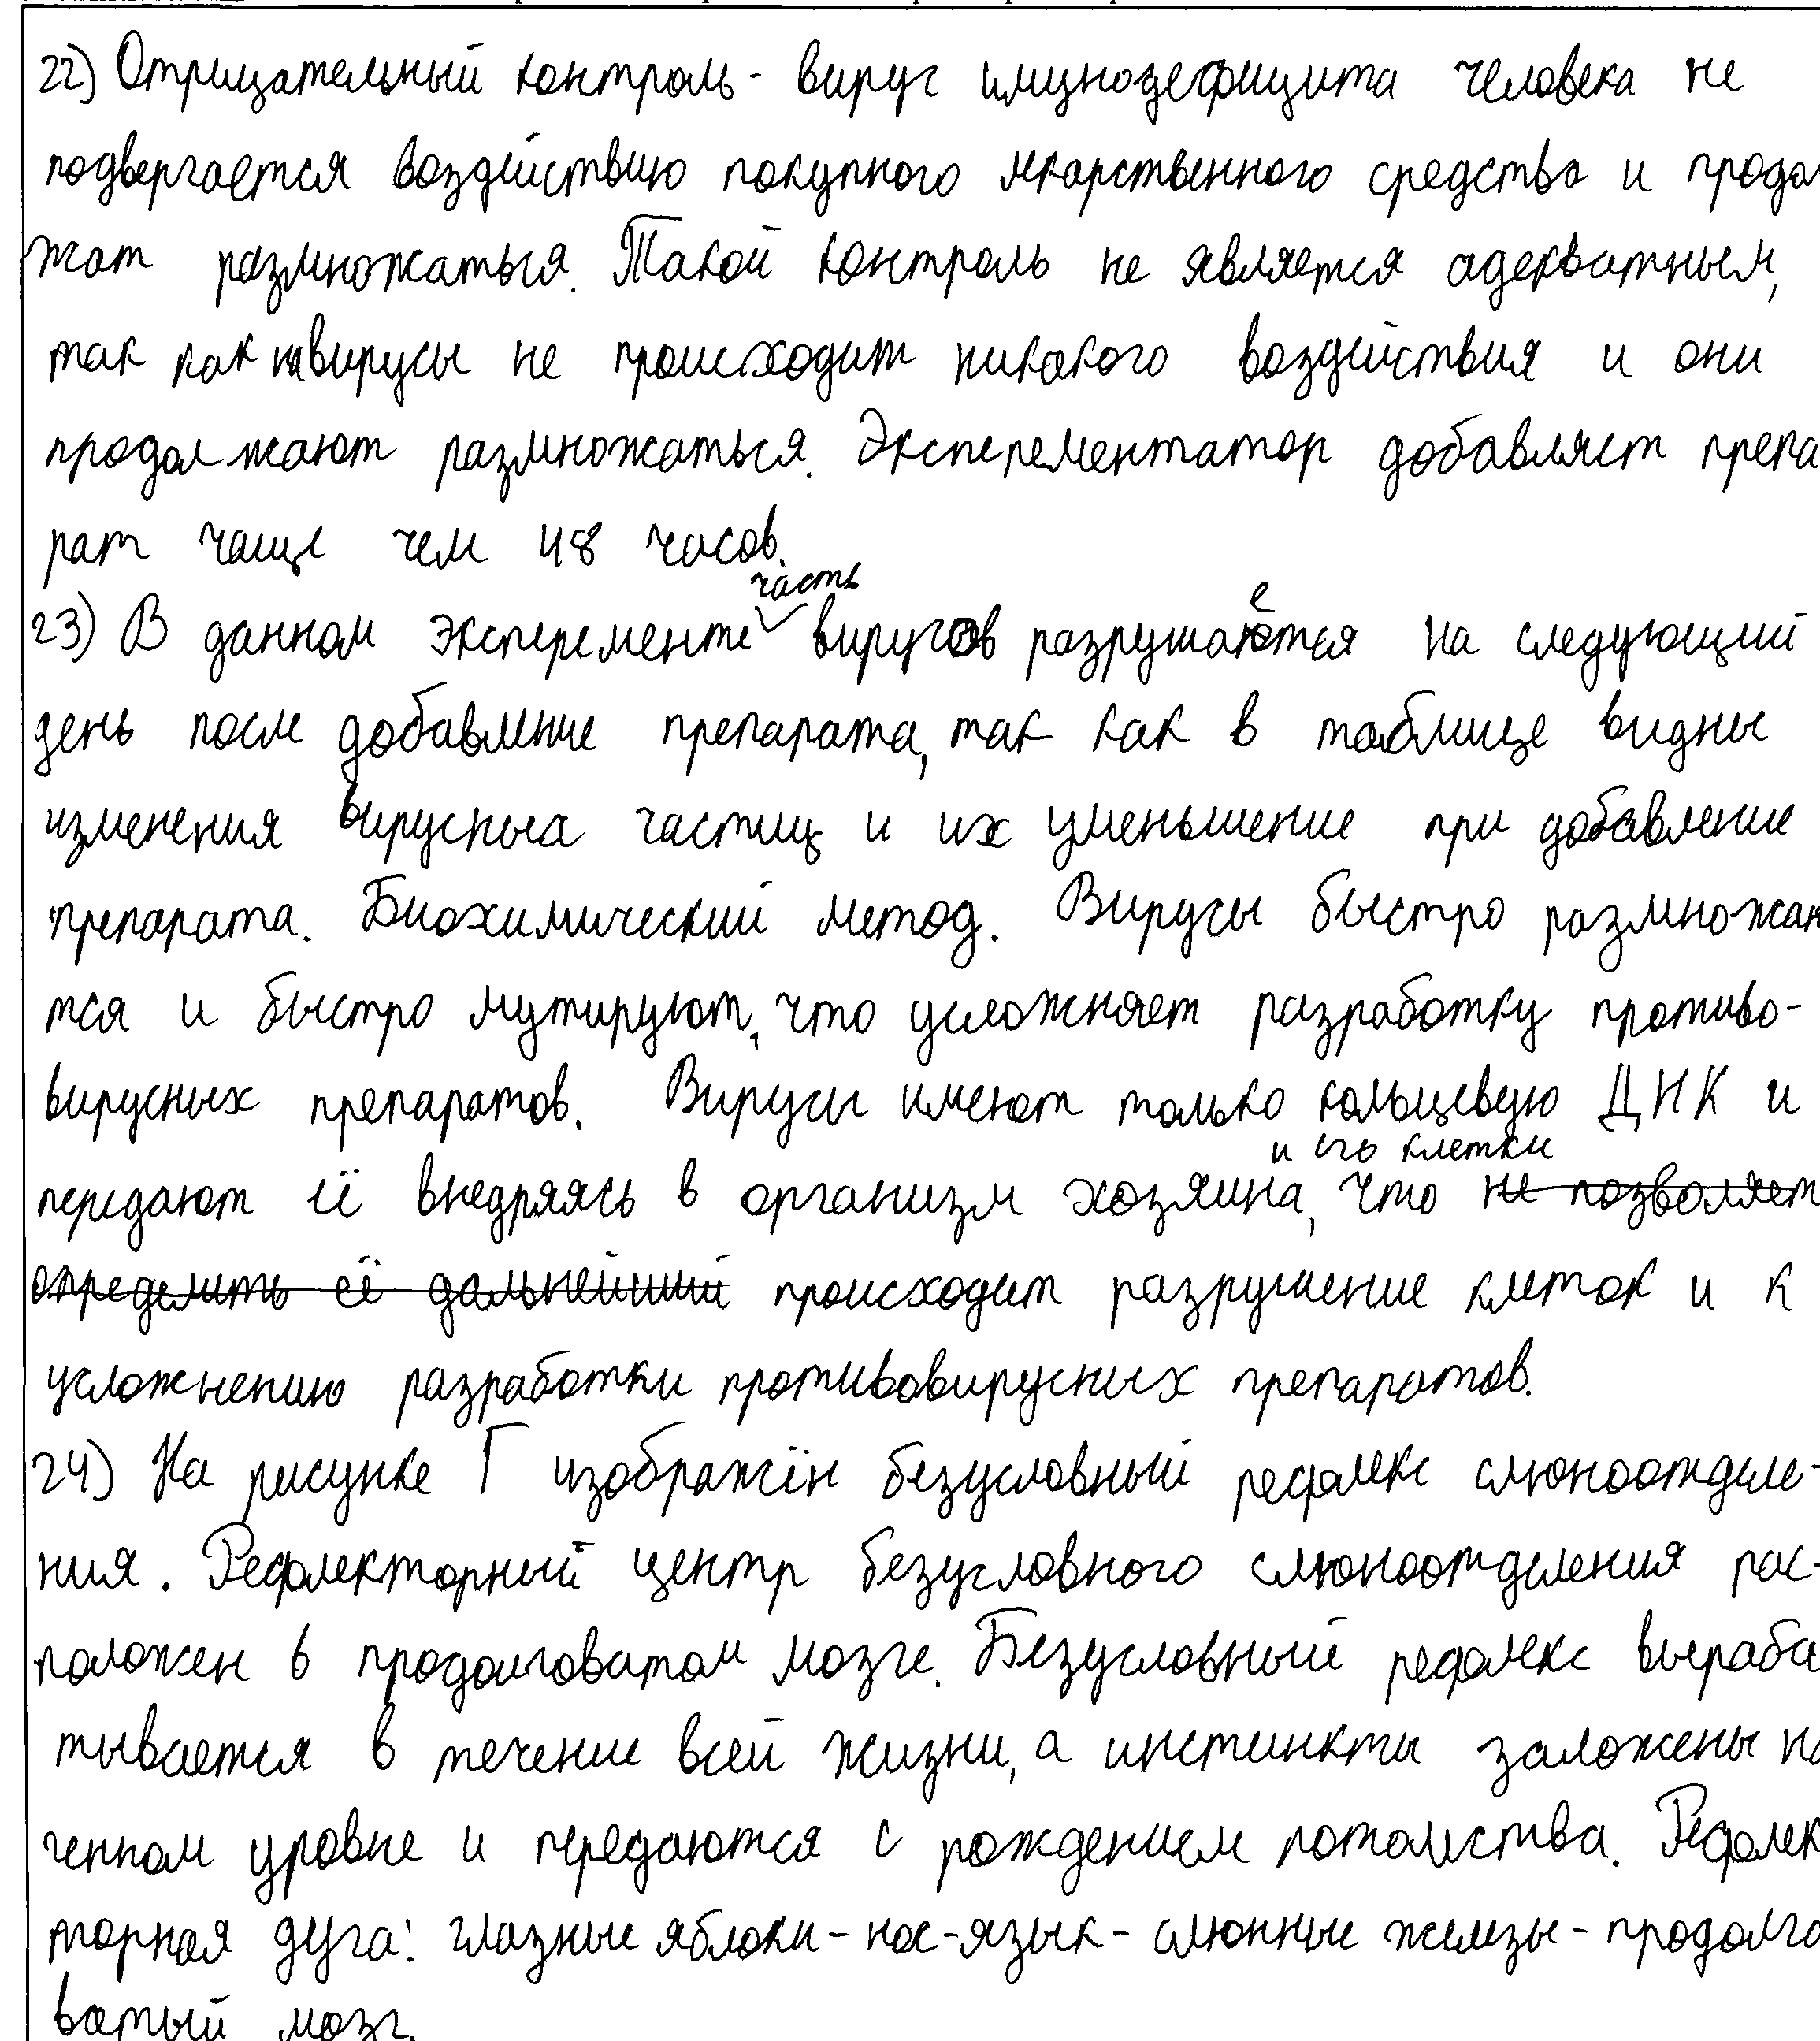 22) Отрицательный контроль - вирус имунодефицита человека не
подвергается воздействию покупного лекарственного средства и продол
жат размножаться. Такой контроль не является адекватным,
так как на вирусы не происходит никакого воздействия и они
продолжают размножаться. Эксперементатор добавляет препа
рат чаще чем 48 часов.
23) В данном эксперементе часть вирусов разрушается на следующий
день после добавление препарата, так как в таблице видны
изменения вирусных частиц и их уменьшение при добавление
препарата. Биохимический метод. Вирусы быстро размножаю
тся и быстро мутируют, что усложняет разработку противо-
вирусных препаратов. Вирусы имеют только кольцевую ДНК и
передают её внедряясь в организм хозяина и его клетки, что не позволяет
определить её дальнейший происходит разрушение клеток и к
усложнению разработки противовирусных препаратов.
24) На рисунке Г изображён безусловный рефлекс слюноотделе-
ния. Рефлекторный центр безусловного слюноотделения рас-
положен в продолговатом мозге. Безусловный рефлекс выраба
тывается в течение всей жизни, а инстинкты заложены на
генном уровне и передаются с рождением потомства. Рефлек
торная дуга: глазные яблоки - нос - язык - слюнные железы - продолго
ватый мозг.